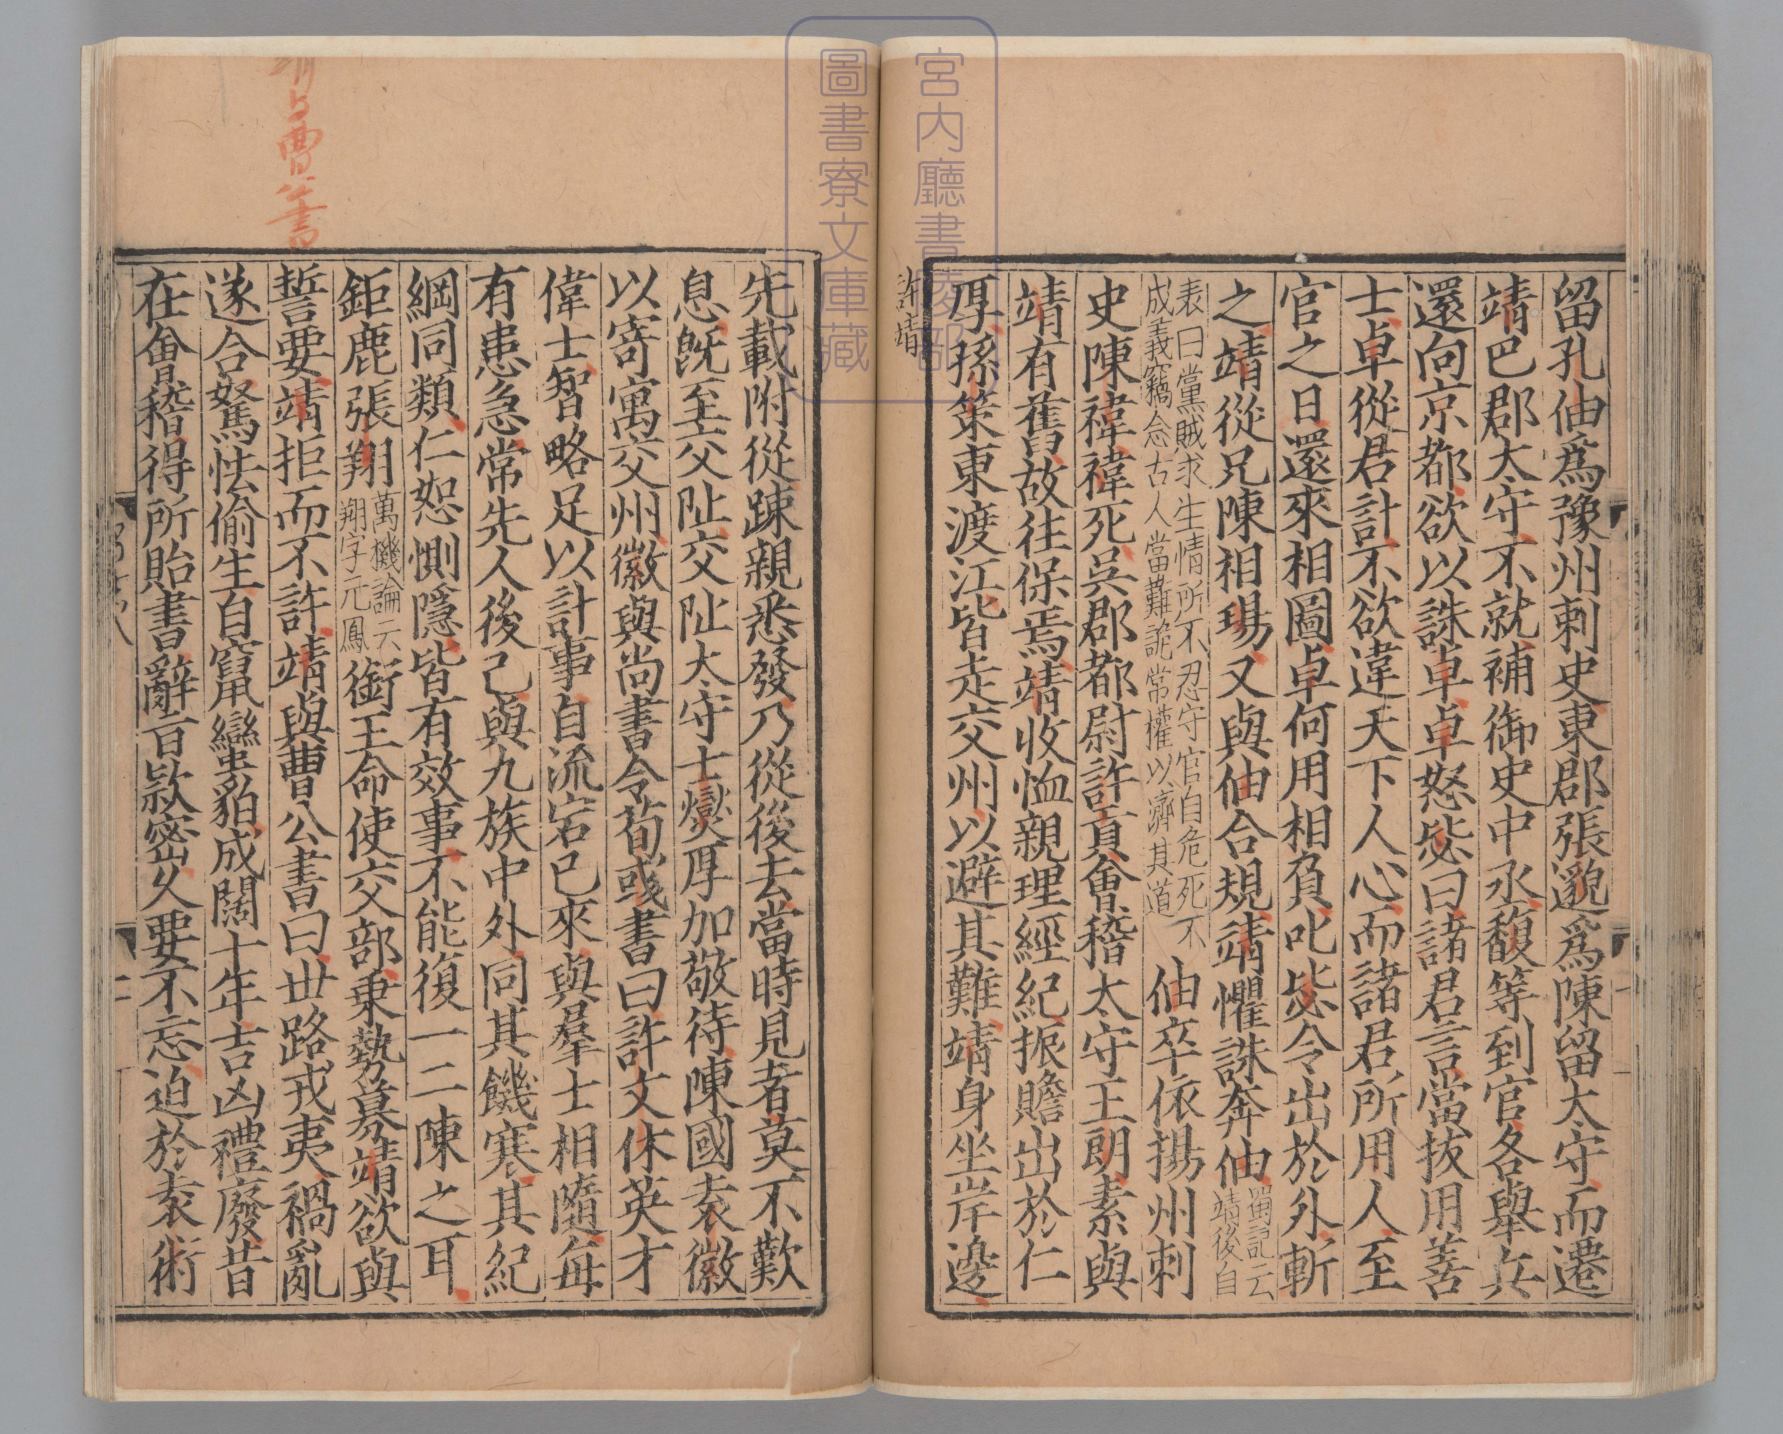 留孔伷爲豫州刺史東郡張邈爲陳留太守而遷
靖巴郡太守不就補御史中丞馥等到官各舉兵
還向京都欲以誅卓卓怒毖曰諸君言當拔用善
士卓從君計不欲違天下人心而諸君所用人至
官之日還來相圖卓何用相負叱毖令出於外斬
之靖從兄陳相瑒又與伷合規靖懼誅奔伷
蜀記云
靖後自
表曰黨賊求生情所不忍守官自危死不
成義竊念古人當難詭常權以濟其道
伷卒依揚州刺
史陳禕禕死吳郡都尉許貢會稽太守王朗素與
靖有舊故往保焉靖收恤親理經紀振贍出於仁
厚孫策東渡江皆走交州以避其難靖身坐岸邊
許靖
先載附從踈親悉發乃從後去當時見者莫不歎
息旣至交阯交阯太守士燮厚加敬待陳國袁徽
以寄寓交州徽與尚書令荀彧書曰許文休英才
偉士智略足以計事自流宕已來與羣士相隨每
有患急常先人後己與九族中外同其饑寒其紀
綱同類仁恕惻隱皆有效事不能復一二陳之耳
鉅鹿張翔
萬機論云
翔字元鳳
銜王命使交部乗勢募靖欲與
誓要靖拒而不許靖與曹公書曰丗路戎夷禍亂
遂合駑怯偷生自竄蠻貊成闊十年吉凶禮廢昔
在會稽得所貽書辭㫖欵密乆要不忘迫於袁術
靖与曹公書
宮内廳書陵部
圖書寮文庫藏